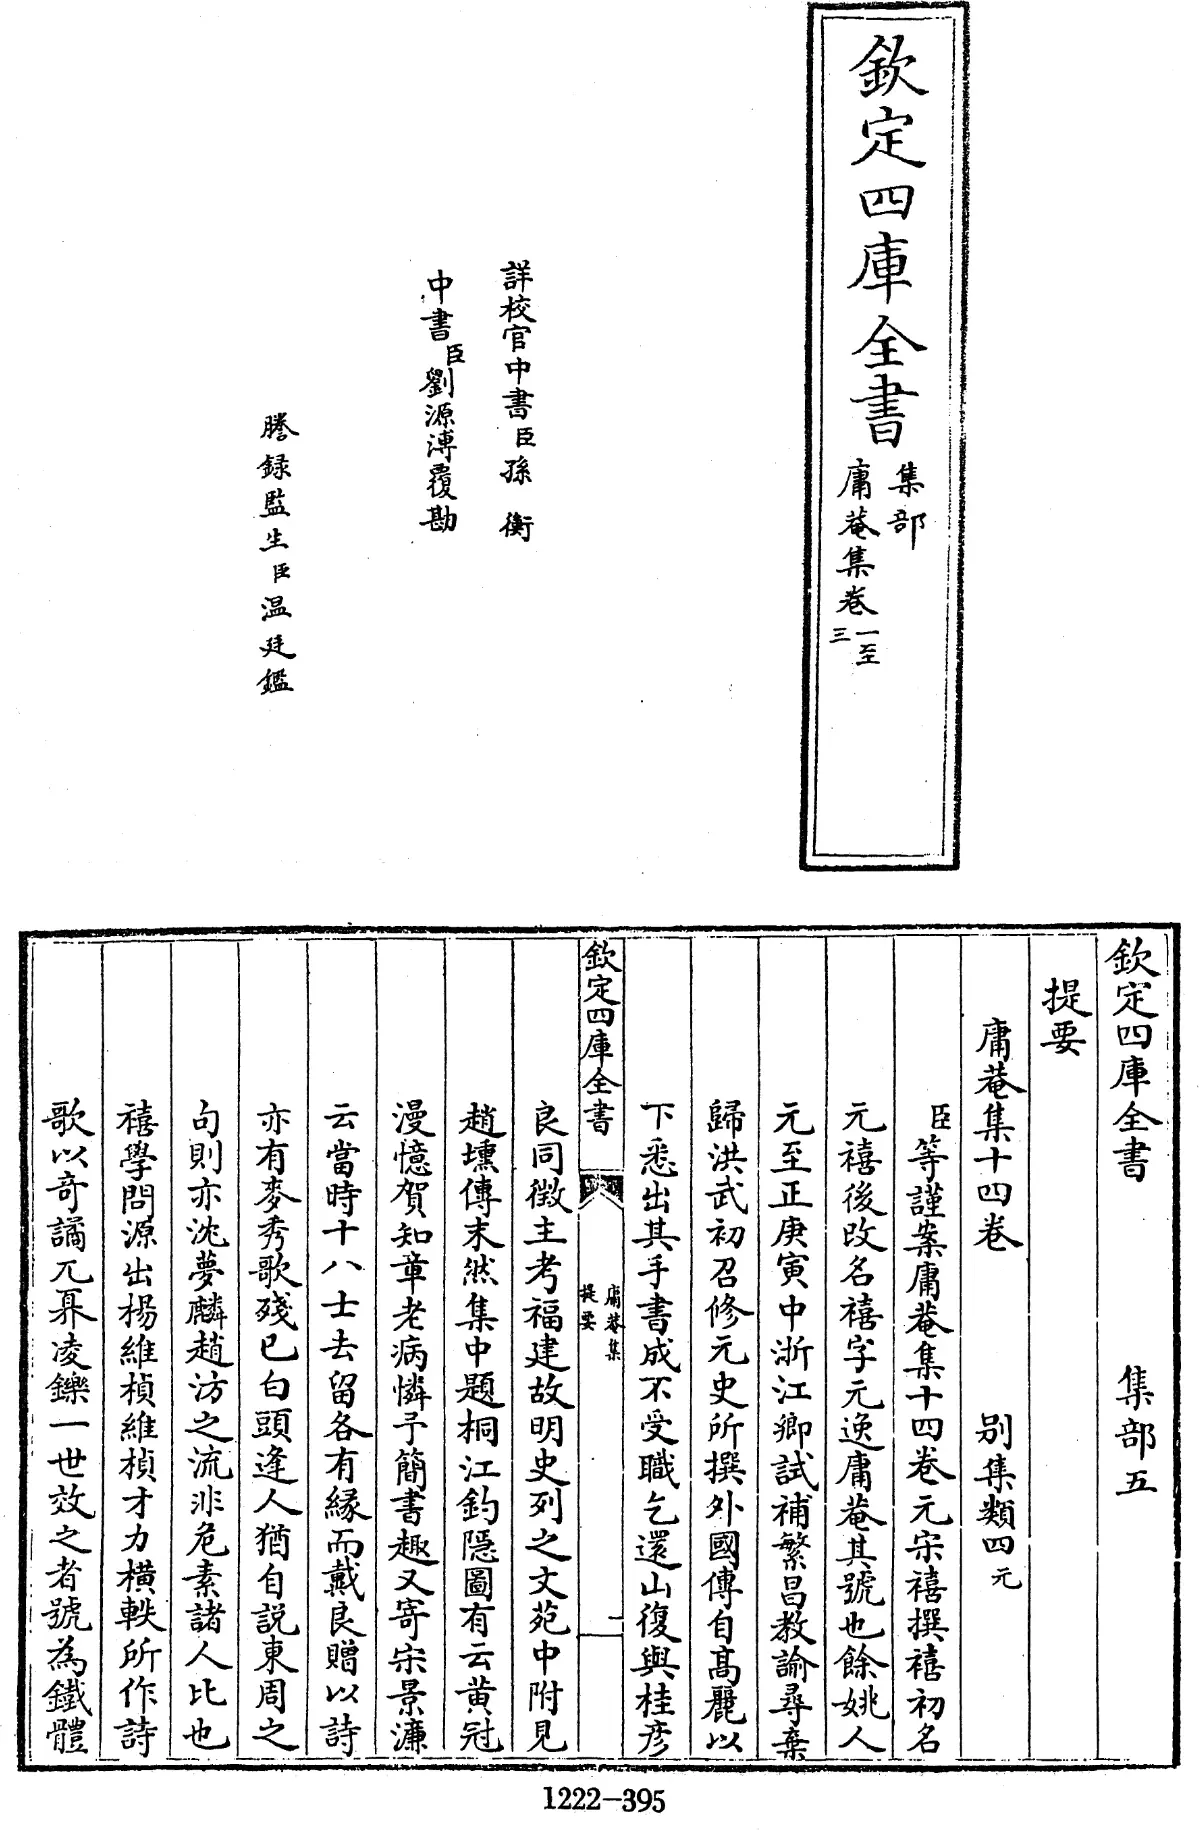 欽定四庫全書
集部
庸菴集卷一至
三
詳校官中書臣孫衡
中書臣劉源溥覆勘
謄録監生臣温廷鑑
欽定四庫全書 集部五
提要
庸菴集十四卷 别集類四元
臣等謹案庸菴集十四卷元宋禧撰禧初名
元禧後改名禧字元逸庸菴其號也餘姚人
元至正庚寅中浙江鄉試補繁昌教諭尋棄
歸洪武初召修元史所撰外國傳自高麗以
下悉出其手書成不受職乞還山復與桂彦
欽定四庫全書
庸菴集
提要
一
良同徵主考福建故明史列之文苑中附見
趙壎傳末然集中題桐江釣隱圖有云黄冠
漫憶賀知章老病憐予簡書趣又寄宋景濂
云當時十八士去留各有緣而戴良贈以詩
亦有麥秀歌殘已白頭逢人猶自説東周之
句則亦沈夢麟趙汸之流非危素諸人比也
禧學問源出楊維楨維楨才力横軼所作詩
歌以奇譎兀奡凌鑠一世效之者號為鐵體
1222-395